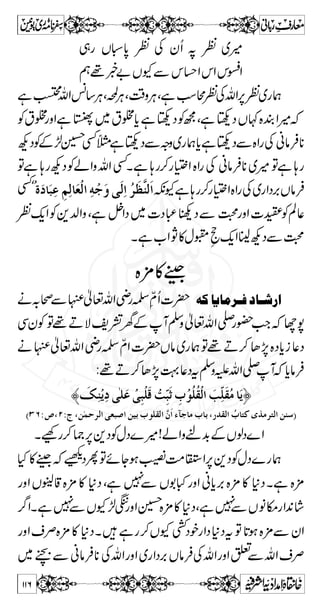 معارفِ ربانی
سفرنامۂ ری یونین
میری نظر پہ اُن کی نظر پاسباں رہی
افسوس اس احساس سے کیوں بے خبر تھے ہم
ہماری نظر پر اللہ کی نظر محاسب ہے، ہر وقت، ہر لمحہ، ہر سانس اللہ محتسب ہے
کہ میرا بندہ کہاں دیکھتا ہے، مجھ کو دیکھتا ہے یا مخلوق میں پھنستا ہے اور مخلوق کو
نافرمانی کی راہ سے دیکھتا ہے یا ہماری وجہ سے دیکھتا ہے مثلاً کسی حسین لڑکے کو دیکھ
رہا ہے تو میری نافرمانی کی راہ اختیار کر رہا ہے۔ کسی اللہ والے کو دیکھ رہا ہے تو
فرماں برداری کی راہ اختیار کر رہا ہے کیونکہ اَلنَّظْرُ اِلٰی وَجْہِ الْعَالِمِ عِبَادَۃٌ کسی
عالم کو عقیدت اور محبت سے دیکھنا عبادت میں داخل ہے، والدین کو ایک نظر
محبت سے دیکھ لینا ایک حج مقبول کا ثواب ہے۔
جینے کا مزہ
ارشاد فرمایا کہ حضرت اُمّ سلمہ رضی اللہ تعالیٰ عنہا سے صحابہ نے
پوچھا کہ جب حضور صلی اللہ تعالیٰ وسلم آپ کے گھر تشریف لاتے تھے تو کون سی
دعا زیادہ پڑھا کرتے تھے تو ہماری ماں حضرت ام سلمہ رضی اللہ تعالیٰ عنہا نے
فرمایا کہ آپ صلی اللہ علیہ وسلم یہ دعا بہت پڑھا کرتے تھے:
﴿یَا مُقَلِّبَ الْقُلُوْبِ ثَبِّتْ قَلْبِیْ عَلٰی دِیْنِکَ﴾
(سنن الترمذی کتابُ القدر، باب ماجآء انَّ القلوب بین اصبعی الرحمٰن، ج:۲، ص:۳۶)
اے دلوں کے بدلنے والے! میرے دل کو دین پر جما کر رکھیے۔
ہمارے دل کو دین پر استقامت نصیب ہو جائے تو پھر دیکھیے کہ جینے کا کیا
مزہ ہے۔ دنیا کا مزہ بریانی اور کبابوں سے نہیں ہے، دنیا کا مزہ قالینوں اور
شاندار مکانوں سے نہیں ہے، دنیا کا مزہ حسین اور ننگی لڑکیوں سے نہیں ہے۔ اگر
ان سے مزہ ہوتا تو یہ دنیا دار خودکشی کیوں کر رہے ہیں۔ دنیا کا مزہ صرف اور
صرف اللہ سے تعلق اور اللہ کی فرماں برداری اور اللہ کی نافرمانی سے بچنے میں
خانقاہ امدادیہ اشرفیہ
۱۱۶